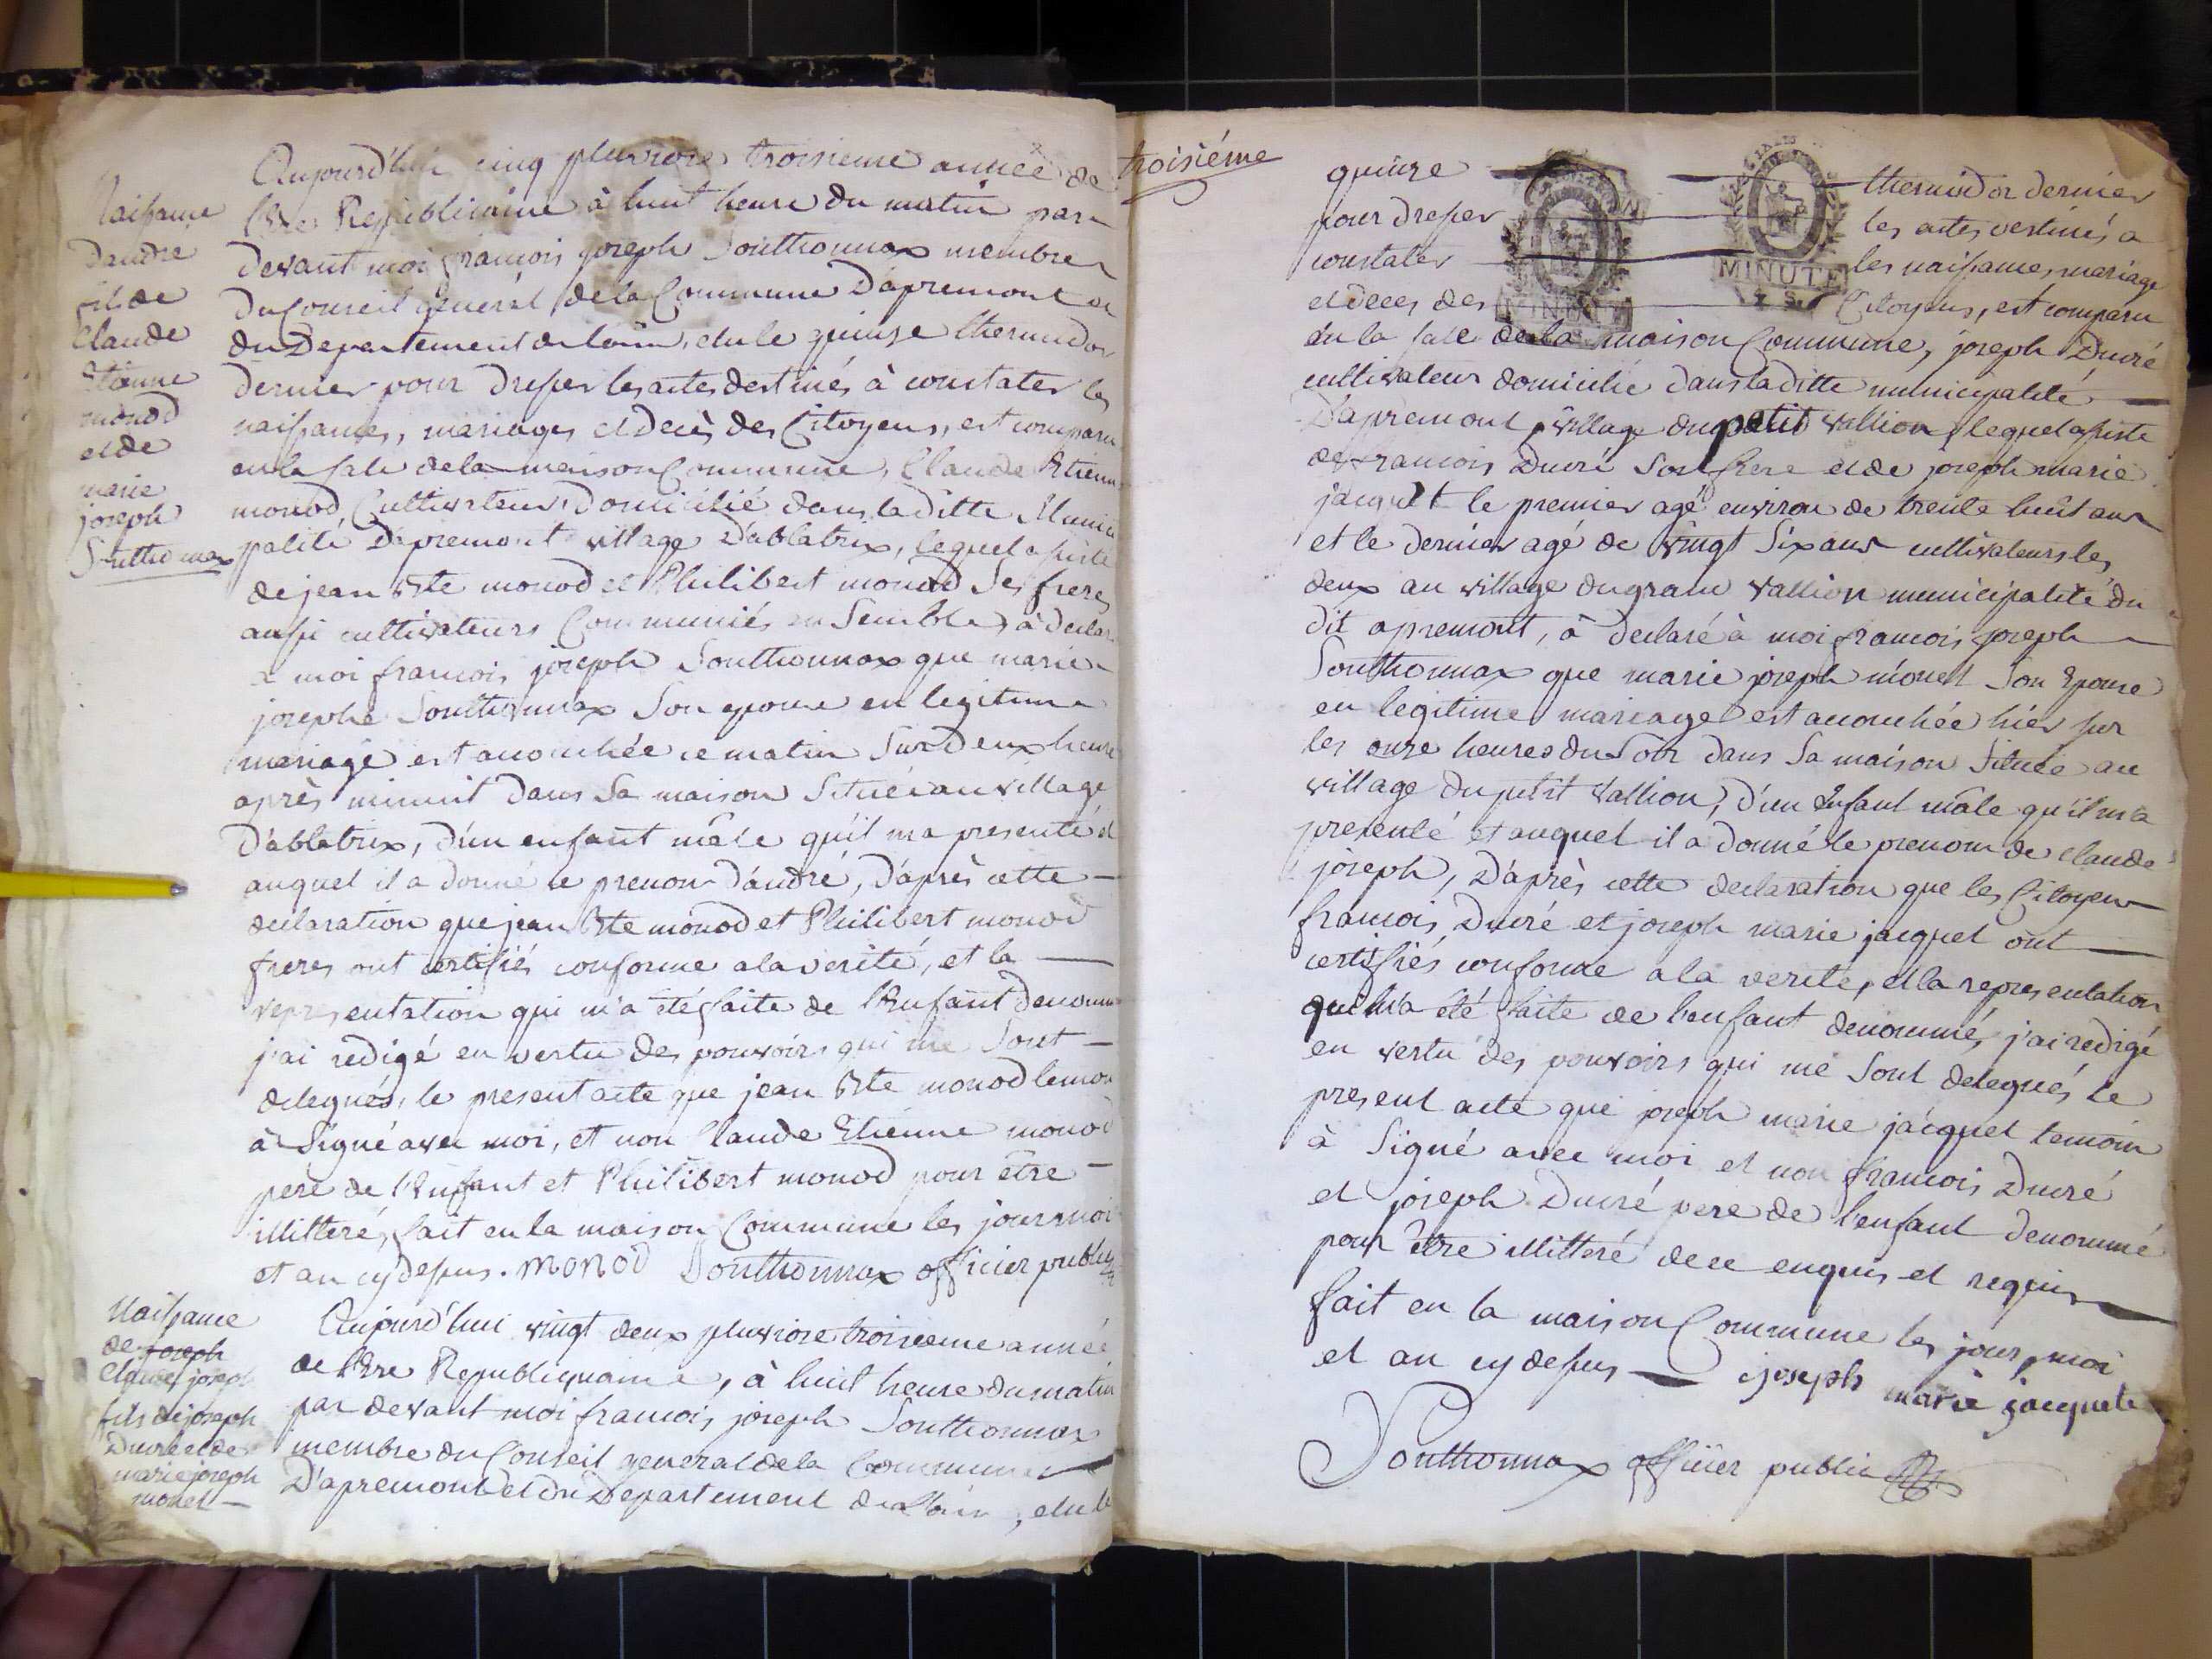 Naissance
d'andré
fil de
Claude
Etienne
monod
et de
marie
joseph
Southonnax
Aujourd'hui cinq pluviose troisieme année de
l'Ere Republicaine à huit heure du matin par
devant moi françois joseph Southonnax membre
du Conseil général de la Commune D'apremont
du Departement de l'ain, elu le quinze thermidor
dernier pour dresser les actes destinés à constater les
naissances, mariages et decès des Citoyens, est comparu
en la sale de la maison Commune, Claude Etienne
monod, Cultivateur domicilié dans la ditte Munici
palité D'apremont village D'ablatrix, lequel assisté
de jean Bte monod et Philibert monod Ses freres
aussi cultivateurs Communiés en Semble, à declaré
a moi françois joseph Southonnax que marie
josephe Southonnax Son epouse en legitime
mariage est accouchée ce matin Sur deux heure
après minuit dans Sa maison Située au village
D'ablatrix, d'un enfant mâle qu'il ma presenté et
auquel il a donné le prenom d'andré, D'après cette
declaration que jean Bte monod et Philibert monod
freres ont certifiés conforme a la verité, et la
representation qui m'a été faite de l'Enfant denommé
j'ai redigé en vertu des pouvoirs qui me Sont
delegués, le present acte que jean Bte monod temoin
à Signé avec moi, et non Claude Etienne monod
pere de l'Enfant et Philibert monod pour être
illitteré, fait en la maison Commune les jour moi
et an cy dessus. monod Southonnax officier public
Naissance
de joseph
Claude joseph
fils de joseph
Ducré et de
marie joseph
monet
Aujourd'hui vingt deux pluviose troisieme année
de l'Ere Republiquaine, à huit heure du matin
par devant moi françois joseph Southonnax
membre du Conseil general de la Commune
D'apremont et du Departement de l'ain, elu le
troisiéme
quinze thermidor dernier
pour dresser les actes destinés a
constater les naissances, mariage
et deces des Citoyens, est comparu
MINUTE
MINUTE
7 S.
en la sale de la maison Commune, joseph Ducré
cultivateur domicilié dans la ditte municipalité
D'apremont, village du petit Vallion, lequel assisté
de francois Ducré Son frere et de joseph marie
jacquet le premier agé environ de trente huit ans
et le dernier agé de vingt Six ans cultivateurs les
deux au village du grand Vallion municipalité du
dit apremont, à declaré à moi francois joseph
Southonnax que marie joseph monet Son Epouse
en legitime mariage est accouchée hier sur
les onze heures du Soir dans Sa maison Située au
village du petit Vallion, d'un Enfant mâle qu'il m'a
presenté et auquel il a donné le prenom de claude
joseph, D'après cette declaration que les Citoyens
francois Ducré et joseph marie jacquet ont
certifiés conforme a la verité, et la representation
qui m'a été faite de l'enfant denommé, j'ai redigé
en vertu des pouvoirs qui me Sont delegués le
present acte que joseph marie jacquet temoin
à Signé avec moi et non francois Ducré
et joseph Ducré pere de l'enfant denommé
pour être illitteré de ce enquis et requis
fait en la maison Commune les jour, moi
et an cy dessus joseph marie jacquet
Southonnax officier public